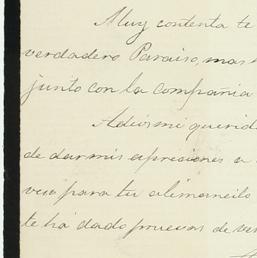 Muy contenta te
verdadero Paraiso, mas
junto con la compañia
Adios mi querid
de dar mis apresiones a
vesa para tu
te há dado pruevas de ver